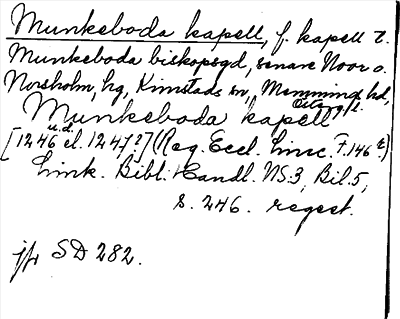 Munkeboda kapell, f. kapell t.
Munkeboda biskopsgd, senare Noor o.
Norsholm, hg, Kimstads sn, Memmings hd,
Östergötl.
Munkeboda kapell
u.d.
[1246 el. 1247?] (Reg. Eccl. Linc. F. 146 r)
Link. Bibl. Handl. NS.3, Bil. 5,
s. 246. regest.
jfr SD 282.